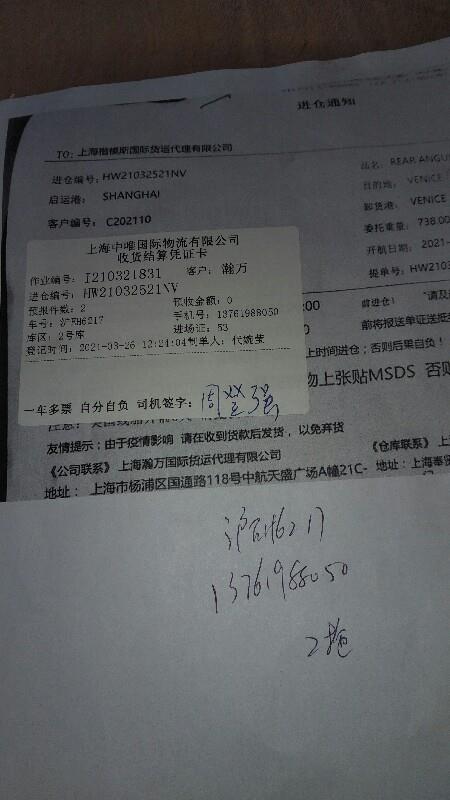 进仓通知
TO: 上海楷模斯国际货运代理有限公司
进仓编号: HW21032521NV
启运港: SHANGHAI
客户编号: C202110
品名: REAR ANGU
目的地: VENICE
卸货港: VENICE
委托重量: 738.00
开航日期: 2021-
提单号: HW2103
上海中唯国际物流有限公司
收货结算凭证卡
作业编号: I210321831 客户: 瀚万
进仓编号: HW21032521NV
预报件数: 2 预收金额: 0
车号: 沪EH6217 手机号: 13761988050
库区: 2号库 进场证: 53
登记时间: 2021-03-26 12:24:04 制单人: 代婉莹
一车多票 自分自负 司机签字:
:00 前进仓! "请及
前将报送单证送抵
上时间进仓;否则后果自负!
物上张贴MSDS 否则
友情提示:由于疫情影响 请在收到货款后发货,以免弃货
《公司联系》上海瀚万国际货运代理有限公司
地址: 上海市杨浦区国通路118号中航天盛广场A幢21C-
《仓库联系》上海
地址: 上海奉贤
13761988050
2拖